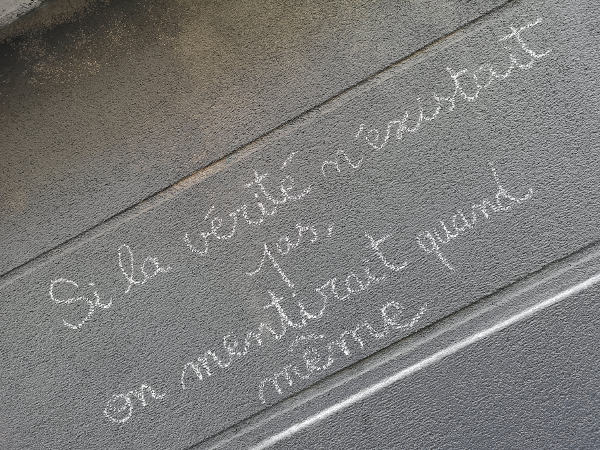 Si la vérité n'existait
pas,
on mentirait quand
même